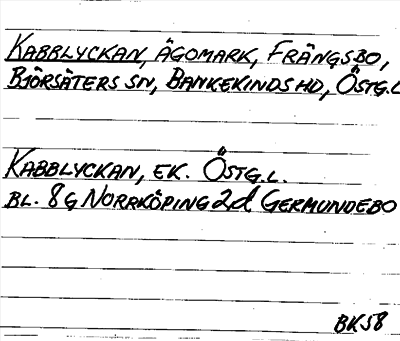 KABBLYCKAN, ÄGOMARK, FRÄNGSBO,
BJÖRSÄTERS SN, BANKEKINDS HD, ÖSTG.L
KABBLYCKAN, EK. ÖSTG.L.
BL. 8G NORRKÖPING 2d GERMUNDEBO
BK58